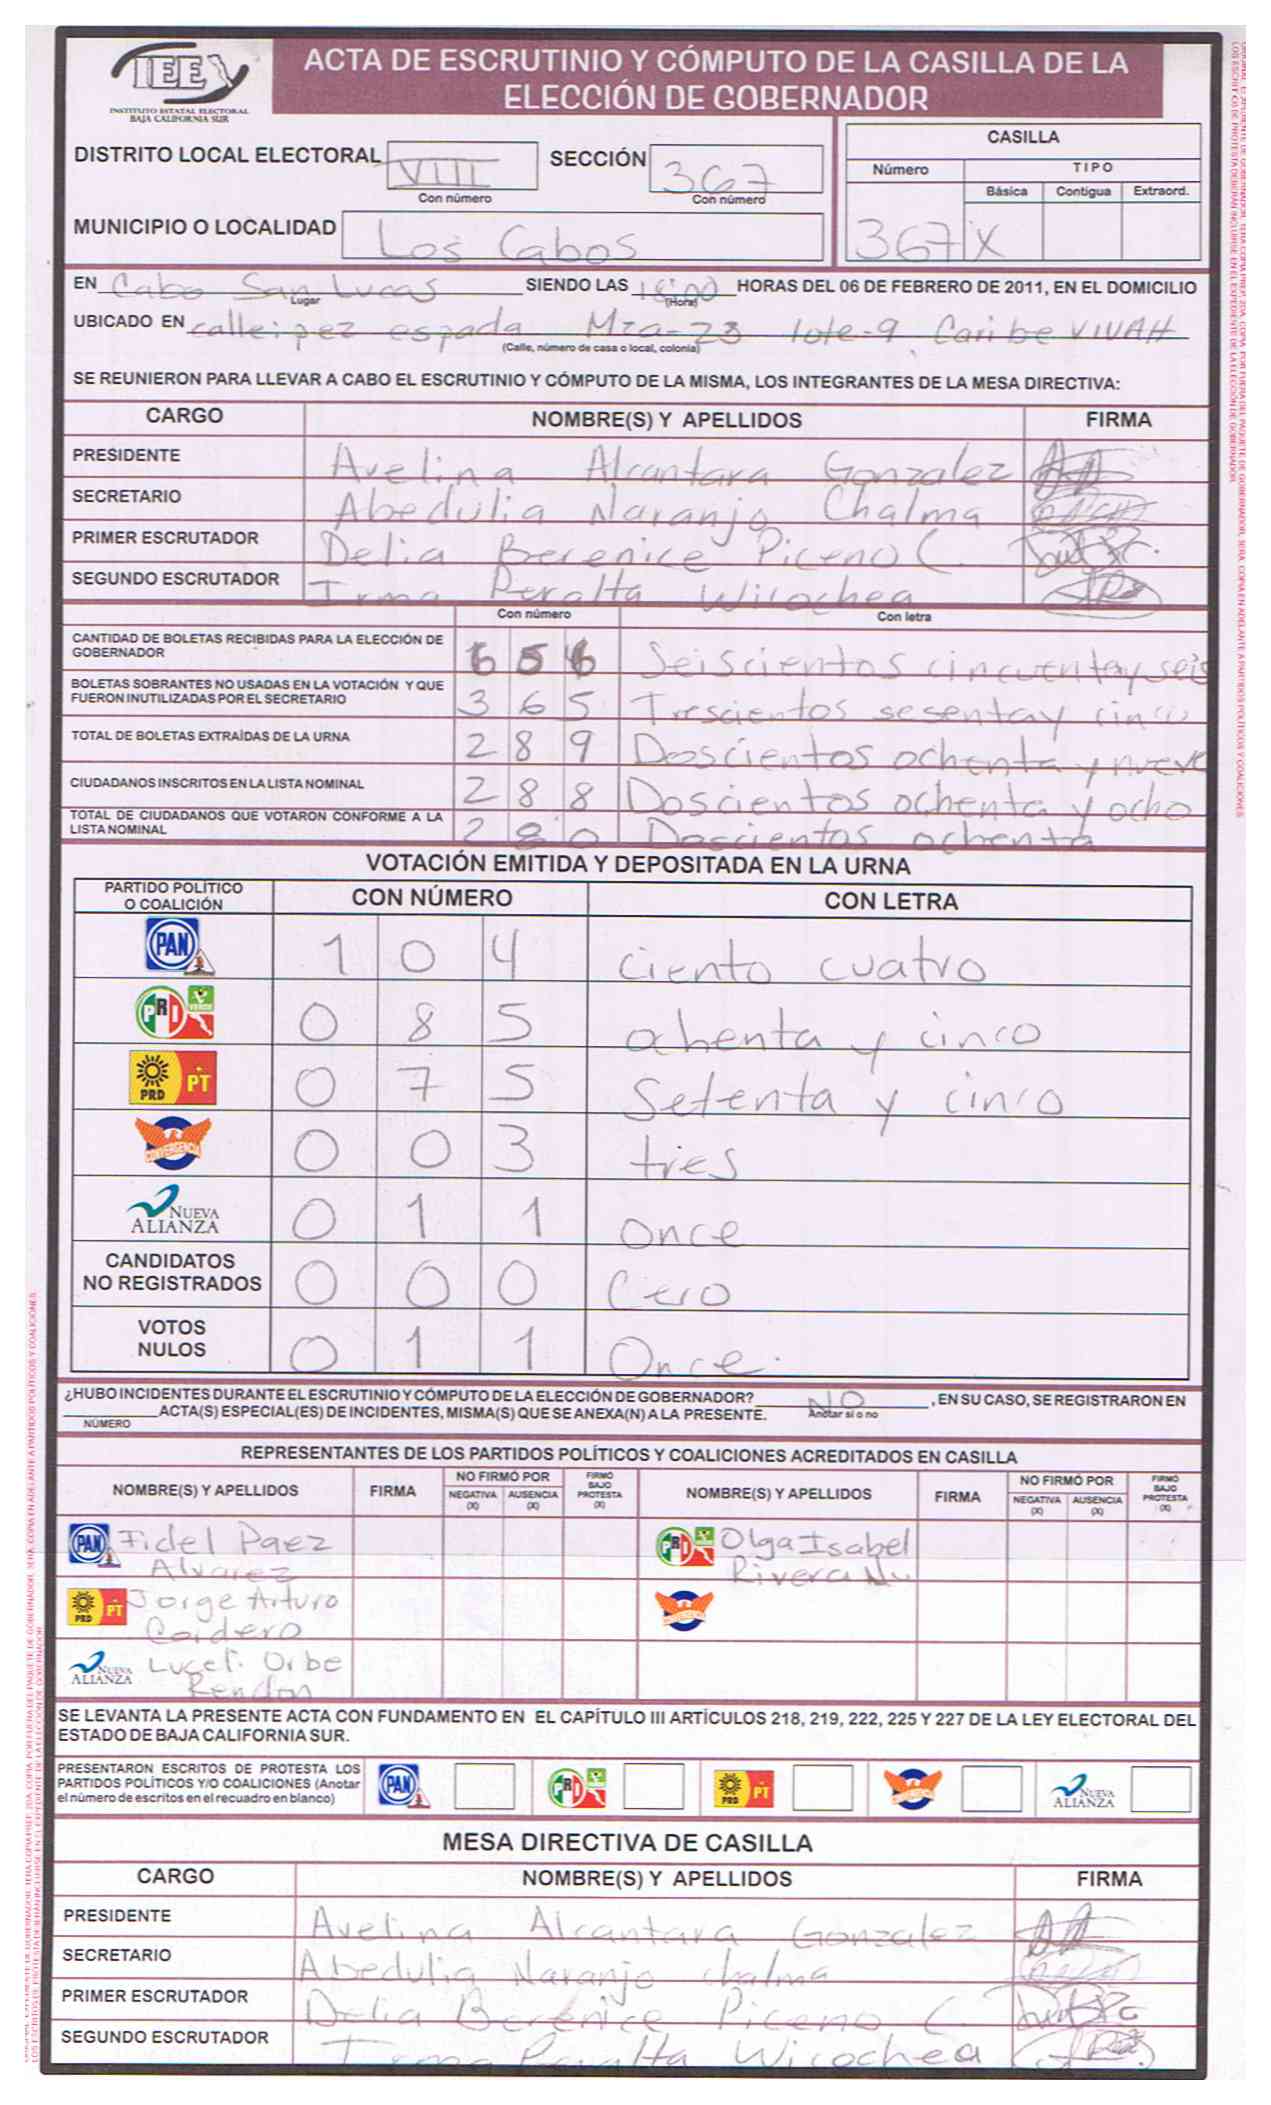 IEE
INSTITUTO ESTATAL ELECTORAL
BAJA CALIFORNIA SUR
ACTA DE ESCRUTINIO Y CÓMPUTO DE LA CASILLA DE LA
ELECCIÓN DE GOBERNADOR
DISTRITO LOCAL ELECTORAL VIII SECCIÓN 367
Con número Con número
MUNICIPIO O LOCALIDAD Los Cabos
CASILLA
Número TIPO
Básica Contigua Extraord.
367 X
EN Cabo San Lucas SIENDO LAS HORAS DEL 06 DE FEBRERO DE 2011, EN EL DOMICILIO
Lugar (Hora)
UBICADO EN calle: pez espada Mza-23 lote-9 Caribe VIVAH
(Calle, número de casa o local, colonia)
SE REUNIERON PARA LLEVAR A CABO EL ESCRUTINIO Y CÓMPUTO DE LA MISMA, LOS INTEGRANTES DE LA MESA DIRECTIVA:
CARGO NOMBRE(S) Y APELLIDOS FIRMA
PRESIDENTE Avelina Alcantara Gonzalez
SECRETARIO Abedulia Naranjo Chalma
PRIMER ESCRUTADOR Delia Berenice Piceno C.
SEGUNDO ESCRUTADOR Irma Peralta Wicochea
Con número Con letra
CANTIDAD DE BOLETAS RECIBIDAS PARA LA ELECCIÓN DE
GOBERNADOR 656 Seiscientos cincuenta y seis
BOLETAS SOBRANTES NO USADAS EN LA VOTACIÓN Y QUE
FUERON INUTILIZADAS POR EL SECRETARIO 365 Trescientos sesenta y cinco
TOTAL DE BOLETAS EXTRAÍDAS DE LA URNA 289 Doscientos ochenta y nueve
CIUDADANOS INSCRITOS EN LA LISTA NOMINAL 288 Doscientos ochenta y ocho
TOTAL DE CIUDADANOS QUE VOTARON CONFORME A LA
LISTA NOMINAL 280 Doscientos ochenta
VOTACIÓN EMITIDA Y DEPOSITADA EN LA URNA
PARTIDO POLÍTICO
O COALICIÓN CON NÚMERO CON LETRA
PAN 1 0 4 ciento cuatro
PRI VERDE 0 8 5 ochenta y cinco
PRD PT 0 7 5 Setenta y cinco
CONVERGENCIA 0 0 3 tries
NUEVA ALIANZA 0 1 1 Once
CANDIDATOS
NO REGISTRADOS 0 0 0 Cero
VOTOS
NULOS 0 1 1 Once.
¿HUBO INCIDENTES DURANTE EL ESCRUTINIO Y CÓMPUTO DE LA ELECCIÓN DE GOBERNADOR? NO , EN SU CASO, SE REGISTRARON EN
ACTA(S) ESPECIAL(ES) DE INCIDENTES, MISMA(S) QUE SE ANEXA(N) A LA PRESENTE. Anotar sí o no
NÚMERO
REPRESENTANTES DE LOS PARTIDOS POLÍTICOS Y COALICIONES ACREDITADOS EN CASILLA
NOMBRE(S) Y APELLIDOS FIRMA NO FIRMÓ POR NEGATIVA (X) AUSENCIA (X) FIRMÓ BAJO PROTESTA (X) NOMBRE(S) Y APELLIDOS FIRMA NO FIRMÓ POR NEGATIVA (X) AUSENCIA (X) FIRMÓ BAJO PROTESTA (X)
PAN Fidel Paez PRI Olga Isabel
Alvarez Rivera Nu
PRD PT Jorge Arturo CONVERGENCIA
Cordero
NUEVA ALIANZA Luceli Orbe
Rendon
SE LEVANTA LA PRESENTE ACTA CON FUNDAMENTO EN EL CAPÍTULO III ARTÍCULOS 218, 219, 222, 225 Y 227 DE LA LEY ELECTORAL DEL
ESTADO DE BAJA CALIFORNIA SUR.
PRESENTARON ESCRITOS DE PROTESTA LOS
PARTIDOS POLÍTICOS Y/O COALICIONES (Anotar
el número de escritos en el recuadro en blanco)
PAN PRI PRD PT NUEVA ALIANZA
MESA DIRECTIVA DE CASILLA
CARGO NOMBRE(S) Y APELLIDOS FIRMA
PRESIDENTE Avelina Alcantara Gonzalez
SECRETARIO Abedulia Naranjo Chalma
PRIMER ESCRUTADOR Delia Berenice Piceno C.
SEGUNDO ESCRUTADOR Irma Peralta Wicochea